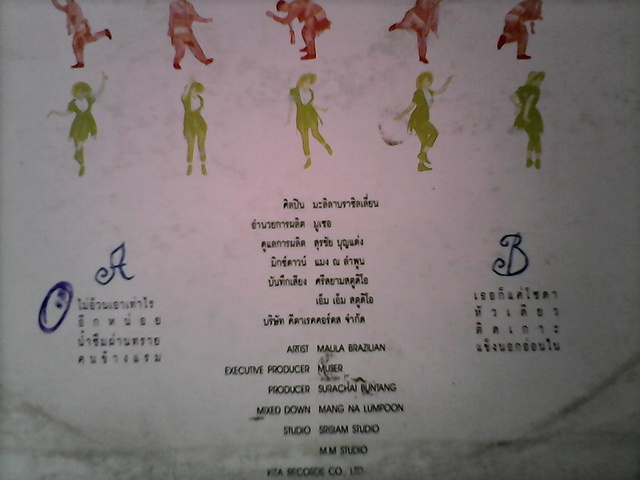 ศิลปิน มะลิลาบราซิลเลี่ยน
อำนวยการผลิต มูเซอ
ดูแลการผลิต สุรชัย บุญแต่ง
มิกซ์ดาวน์ แมง ณ ลำพูน
บันทึกเสียง ศรีสยามสตูดิโอ
เอ็ม เอ็ม สตูดิโอ
บริษัท คีตาเรคคอร์ดส จำกัด
ARTIST MALILA BRAZILIAN
EXECUTIVE PRODUCER MUSER
PRODUCER SURACHAI BUNTANG
MIXED DOWN MANG NA LUMPOON
STUDIO SRISIAM STUDIO
M.M STUDIO
KITA RECORDS CO., LTD.
A
ไม่อ้วนเอาเท่าไร
อีกหน่อย
น้ำซึมผ่านทราย
คนข้างแรม
B
เธอก็แค่โชดา
หัวเดียว
ติดเกาะ
แข็งนอกอ่อนใน